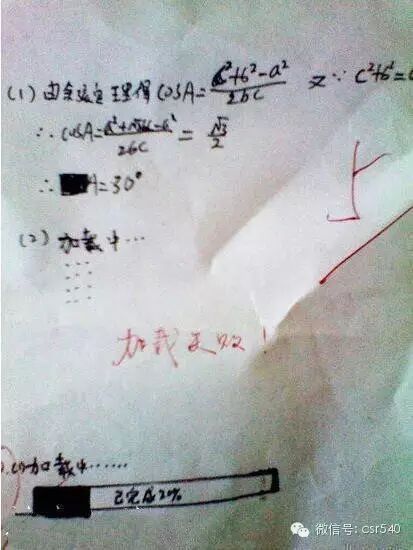 (1) 由余弦定理得 cosA=\frac{c²+b²-a²}{2bc} 又∵ c²+b²=a
∴ cosA=\frac{a²+√3bc-a²}{2bc}=\frac{√3}{2}
∴ A=30°
5
(2) 加载中…
加载失败!
加载中……
已完成2%
微信号: csr540